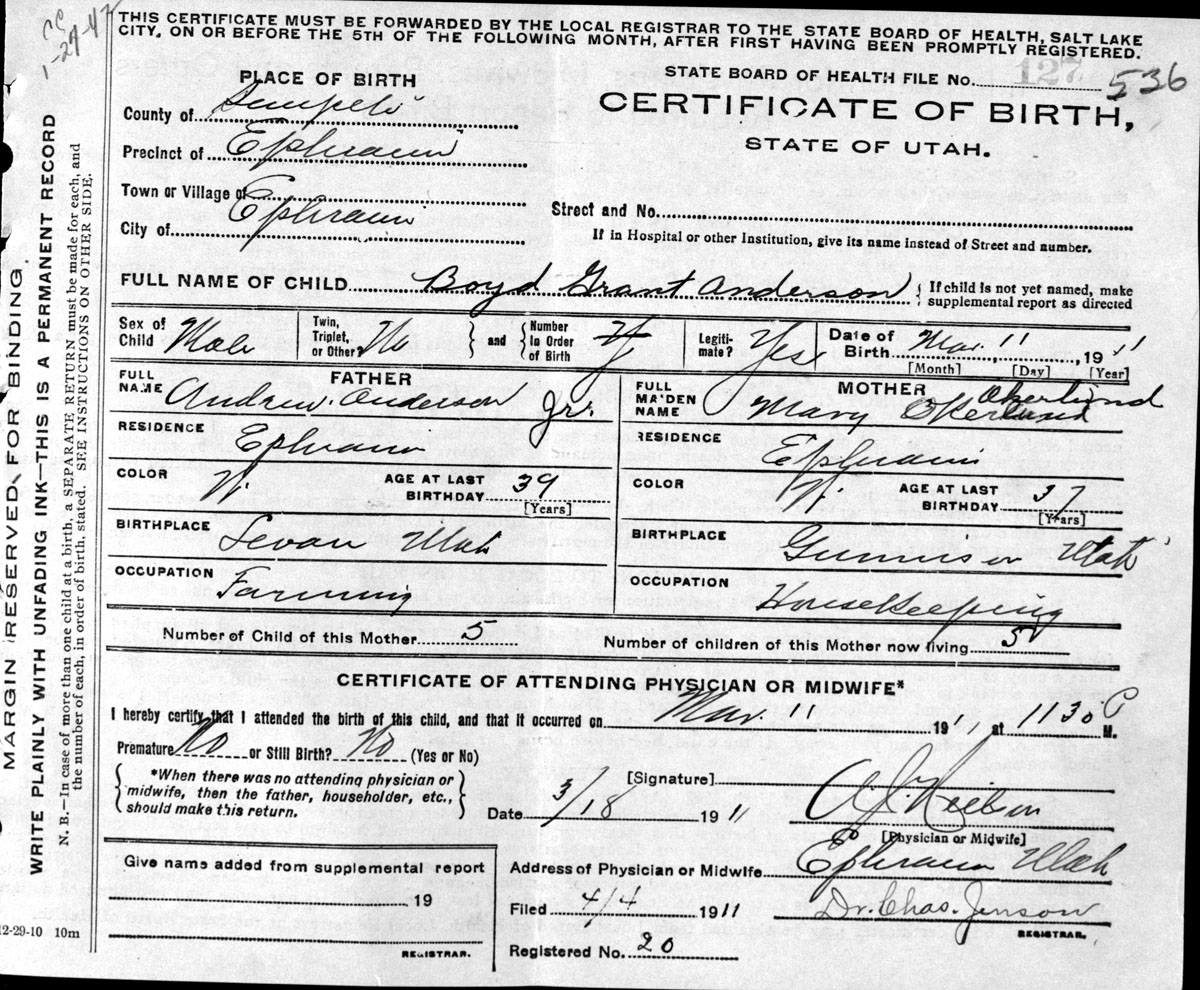 CC
1-29-47
THIS CERTIFICATE MUST BE FORWARDED BY THE LOCAL REGISTRAR TO THE STATE BOARD OF HEALTH, SALT LAKE
CITY, ON OR BEFORE THE 5TH OF THE FOLLOWING MONTH, AFTER FIRST HAVING BEEN PROMPTLY REGISTERED.
PLACE OF BIRTH
County of Sanpete
Precinct of Ephraim
Town or Village of Ephraim
City of
STATE BOARD OF HEALTH FILE No. 127 536
CERTIFICATE OF BIRTH,
STATE OF UTAH.
Street and No.
If in Hospital or other Institution, give its name instead of Street and number.
FULL NAME OF CHILD Boyd Grant Anderson { If child is not yet named, make
supplemental report as directed
Sex of Child Male Twin, Triplet, or Other? No } and { Number in Order of Birth Legiti-mate? Yes Date of Birth Mar. 11, 1911
[Month] [Day] [Year]
FATHER
FULL NAME Andrew Anderson Jr.
RESIDENCE Ephraim
COLOR W. AGE AT LAST BIRTHDAY 39
[Years]
BIRTHPLACE Levan Utah
OCCUPATION Farming
MOTHER
FULL MAIDEN NAME Mary Okerlund Okerlund
RESIDENCE Ephraim
COLOR W. AGE AT LAST BIRTHDAY 37
[Years]
BIRTHPLACE Gunnison Utah
OCCUPATION Housekeeping
Number of Child of this Mother 5 Number of children of this Mother now living 5
CERTIFICATE OF ATTENDING PHYSICIAN OR MIDWIFE*
I hereby certify that I attended the birth of this child, and that it occurred on Mar. 11 1911, at 1130 P M.
Premature No or Still Birth? No (Yes or No)
{ *When there was no attending physician or
midwife, then the father, householder, etc.,
should make this return. }
[Signature] Nielson
[Physician or Midwife]
Date 3/18 1911
Address of Physician or Midwife Ephraim Utah
Filed 4/4 1911 Dr. Chas. Jenson
REGISTRAR.
Registered No. 20
Give name added from supplemental report
19
REGISTRAR.
12-29-10 10m
MARGIN RESERVED FOR BINDING.
WRITE PLAINLY WITH UNFADING INK—THIS IS A PERMANENT RECORD
N. B.—In case of more than one child at a birth, a SEPARATE RETURN must be made for each, and
the number of each, in order of birth, stated. SEE INSTRUCTIONS ON OTHER SIDE.